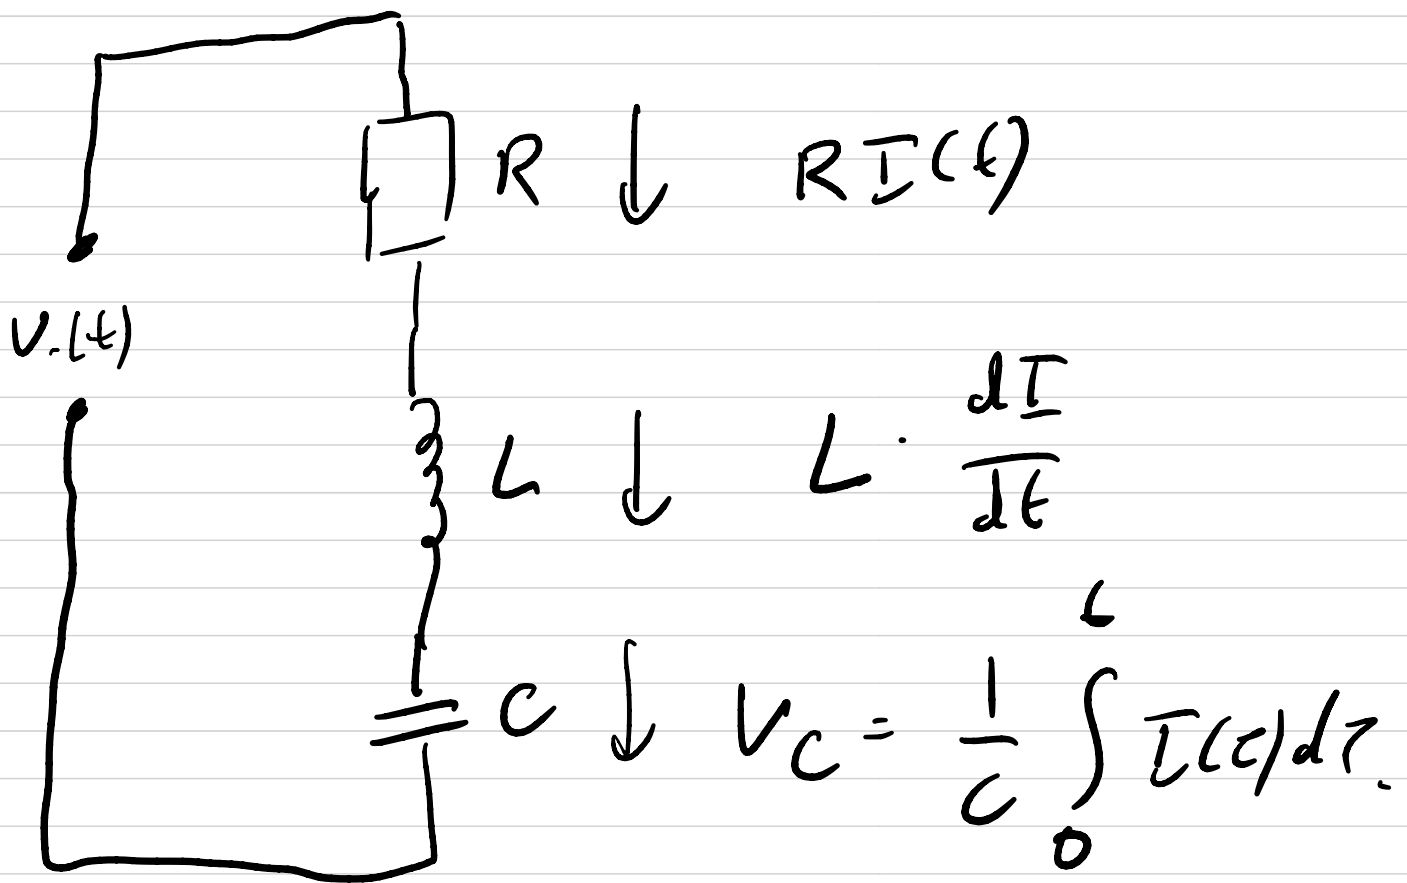 R ↓ R I(t)
V.(t)
L ↓ L · dI/dt
C ↓ V_C = 1/C ∫_0^t I(τ)dτ.